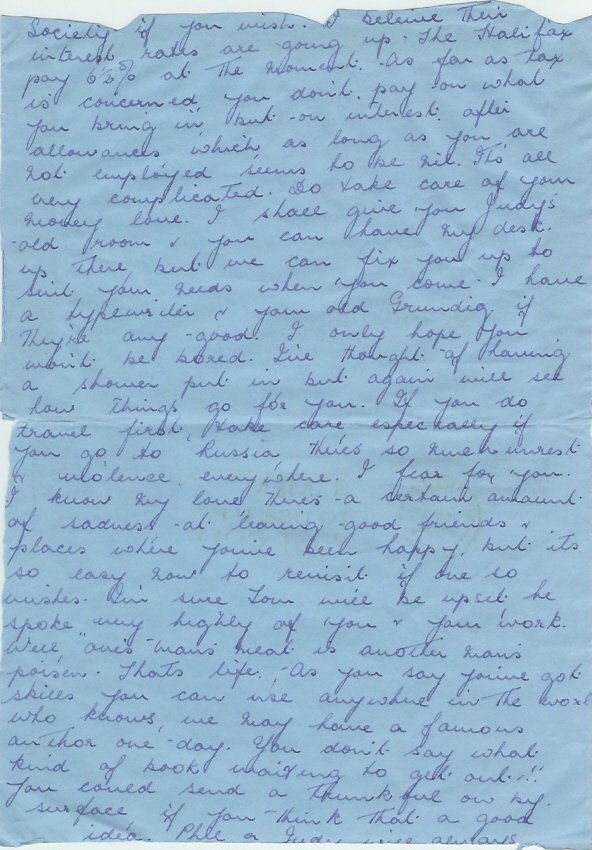 Society if you wish. I beleive their
interest rates are going up. The Halifax
pay 6½% at the moment. As far as tax
is concerned, you don't pay on what
you bring in, but on interest, after
allowances which as long as you are
not employed seems to be nil. It's all
very complicated. Do take care of your
money love. I shall give you Judy's
old room & you can have my desk.
up there, but we can fix you up to
suit your needs when you come. I have
a typewriter & your old Grundig if
they're any good. I only hope you
won't be bored. I've thought of having
a shower put in but again will see
how things go for you. If you do
travel first, take care especially if
you go to Russia, there's so much unrest
& violence everywhere. I fear for you.
I know my love there's a certain amount
of sadness at leaving good friends &
places where you've been happy, but its
so easy now to revisit if one so
wishes. I'm sure Tom will be upset he
spoke very highly of you & your work.
Well "one's man's meat is another mans
poison. Thats life. As you say you've got
skills you can use anywhere in the world
who knows, we may have a famous
author one day. You don't say what
kind of book waiting to get out..!!
You could send a trunk full on by.
surface if you think that a good
idea. Phil & Judy will always